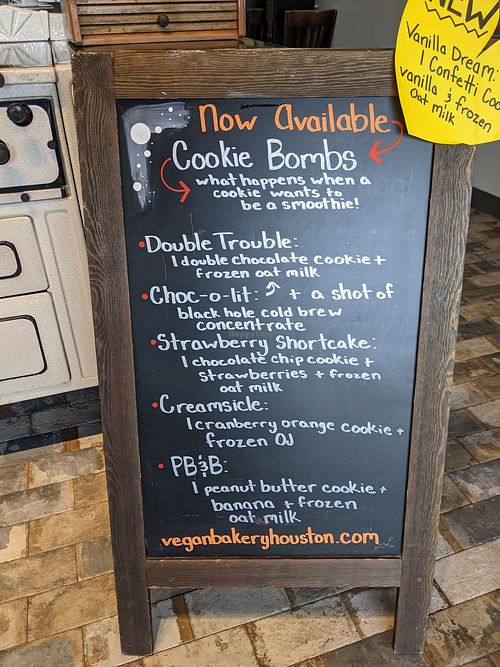 NEW
Vanilla Dream:
1 Confetti Coo
vanilla & frozen
oat milk
Now Available
Cookie Bombs
what happens when a
cookie wants to
be a smoothie!
•Double Trouble:
1 double chocolate cookie +
frozen oat milk
•Choc-o-lit: + a shot of
black hole cold brew
concentrate
•Strawberry Shortcake:
1 chocolate chip cookie +
strawberries + frozen
oat milk
•Creamsicle:
1 cranberry orange cookie +
frozen OJ
• PB&B:
1 peanut butter cookie +
banana + frozen
oat milk
veganbakeryhouston.com